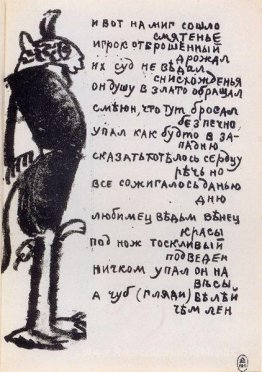 и вот на миг сошло
смятенье
игрок отброшенный
дрожал
их суд не ведал
снисхожденья
он душу в злато обращал
смеюн, что тут бросал
безпечно
упал как будто в за-
падню
сказать хотелось сердцу
речь но
все сожигалось данью
дню
любимец ведьм венец
красы
под нож тоскливый
подведен
ничком упал он на
весы
а чуб (гляди) белей
чем лен